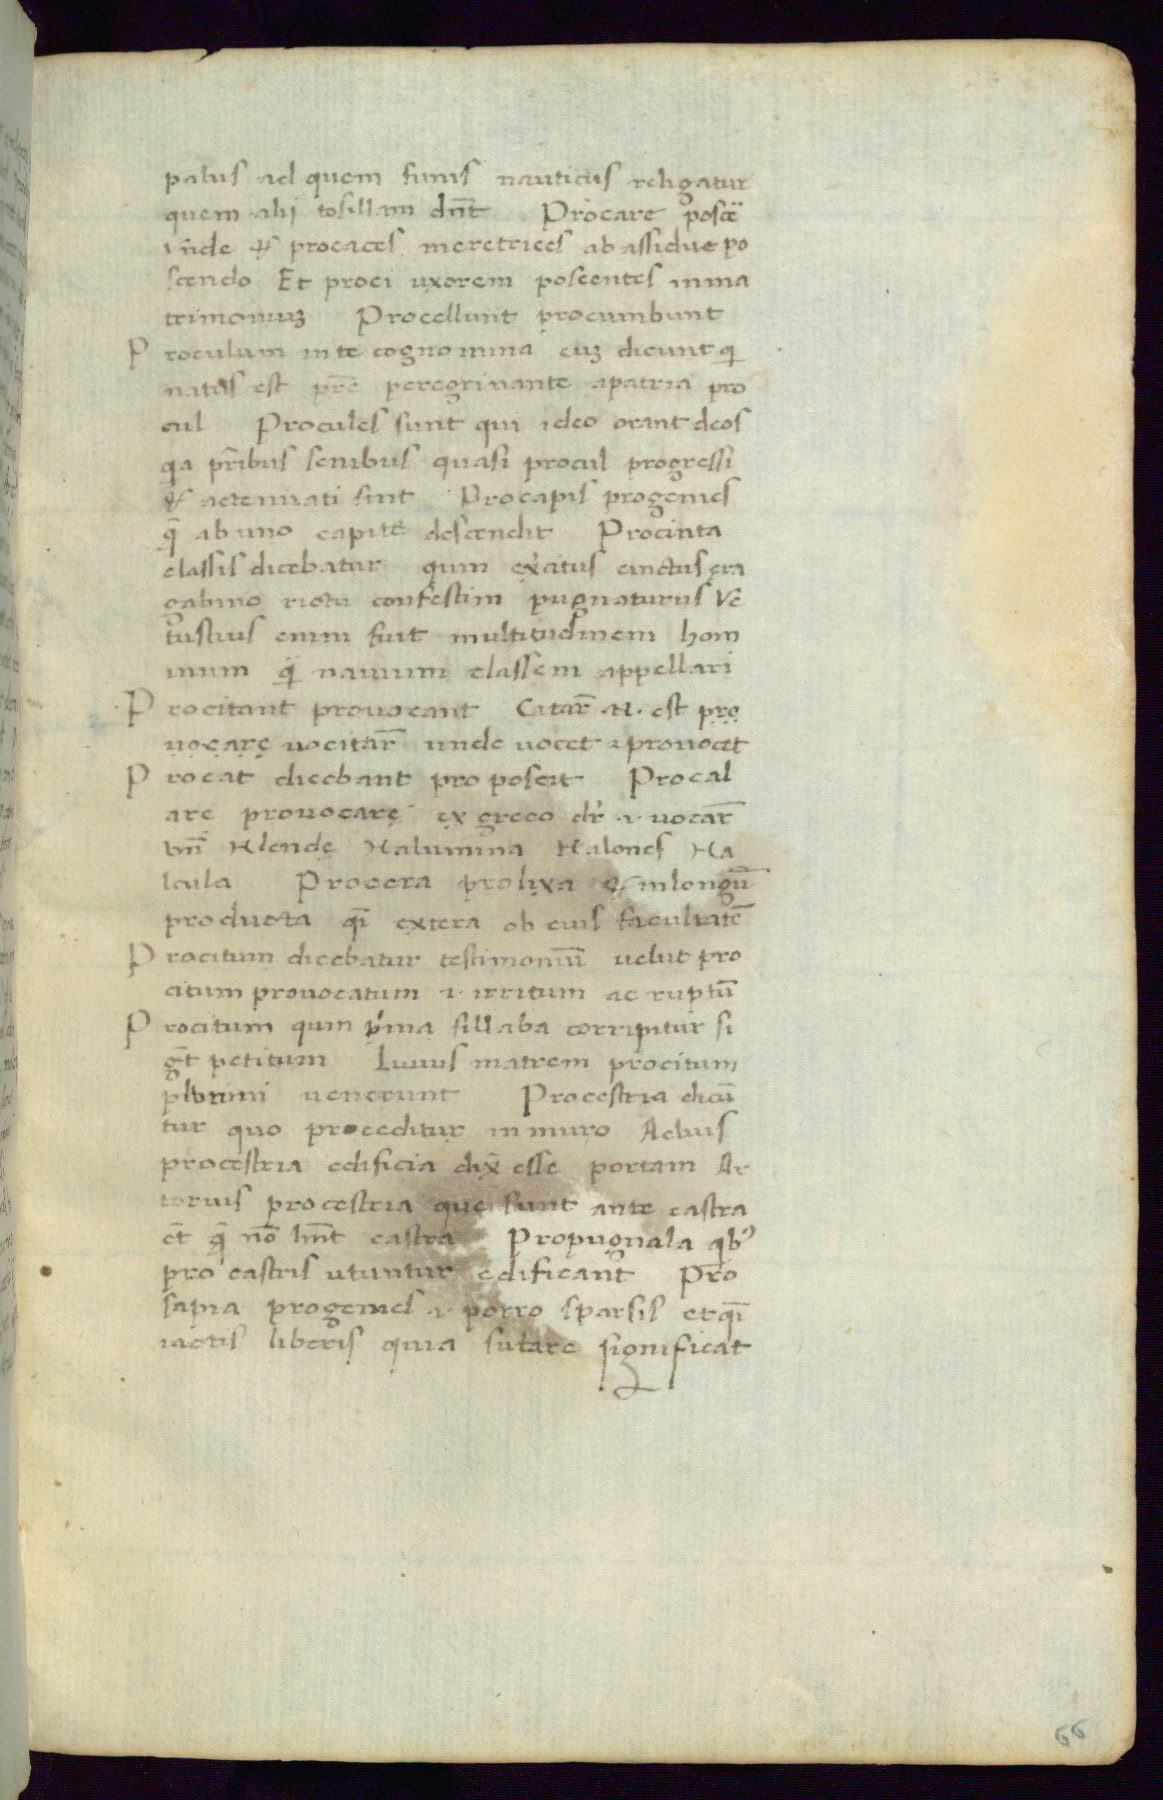 palus ad quem funis nauticus religatur
quem alij tosillam dn̄t Procare poscē
vn̄de & procaces meretrices ab assidue po
scendo Et proci uxorem poscentes in ma
trimoniuꝫ Procellunt procumbunt
Proculum inte cognomina euꝫ dicunt qi
natus est pr̄e peregrinante apatria pro
cul Procules sunt qui ideo orant deos
qa pr̄ibus senibus quasi procul progressi
& aetenuati sint Procapis progenies
q̄ ab uno capite descendit Procinta
classis dicebatur quin exc̓itus cinctus era
gabino rictu confestim pugnaturus Ve
tustius enim fuit multitudinem homi
num qi nauium classem appellari
Procitant prouocant Citar̄ .n. est pro
uocare uocitar̄ unde uocet .i. prouocet
Procat dicebant pro poscit Procal
are prouocare ex greco dr̄ .i. uocar̄
vn̄ Klende Kalumina Kalones Ka
lcula Procera prolixa & inlongū
producta qi extera ob eius facultatē
Procitum dicebatur testimoniū uelut pro
citum prouocatum .i. irritum ac ruptū
Procitum quin p̓ma sillaba corripitur si
gt̄ petitum Liuius matrem procitum
plurimi uenerunt Procestria dicū
tur quo proceditur in muro Aelius
procestria edificia dix̄ esse portam Ar
torius procestria que sunt ante castra
et̄ q̄ nō hn̄t castra Propugnala qb⁹
pro castris utuntur edificant Pro
sapia progenies .i. porro sparsis et qi
iactis liberis quia supare significat
66